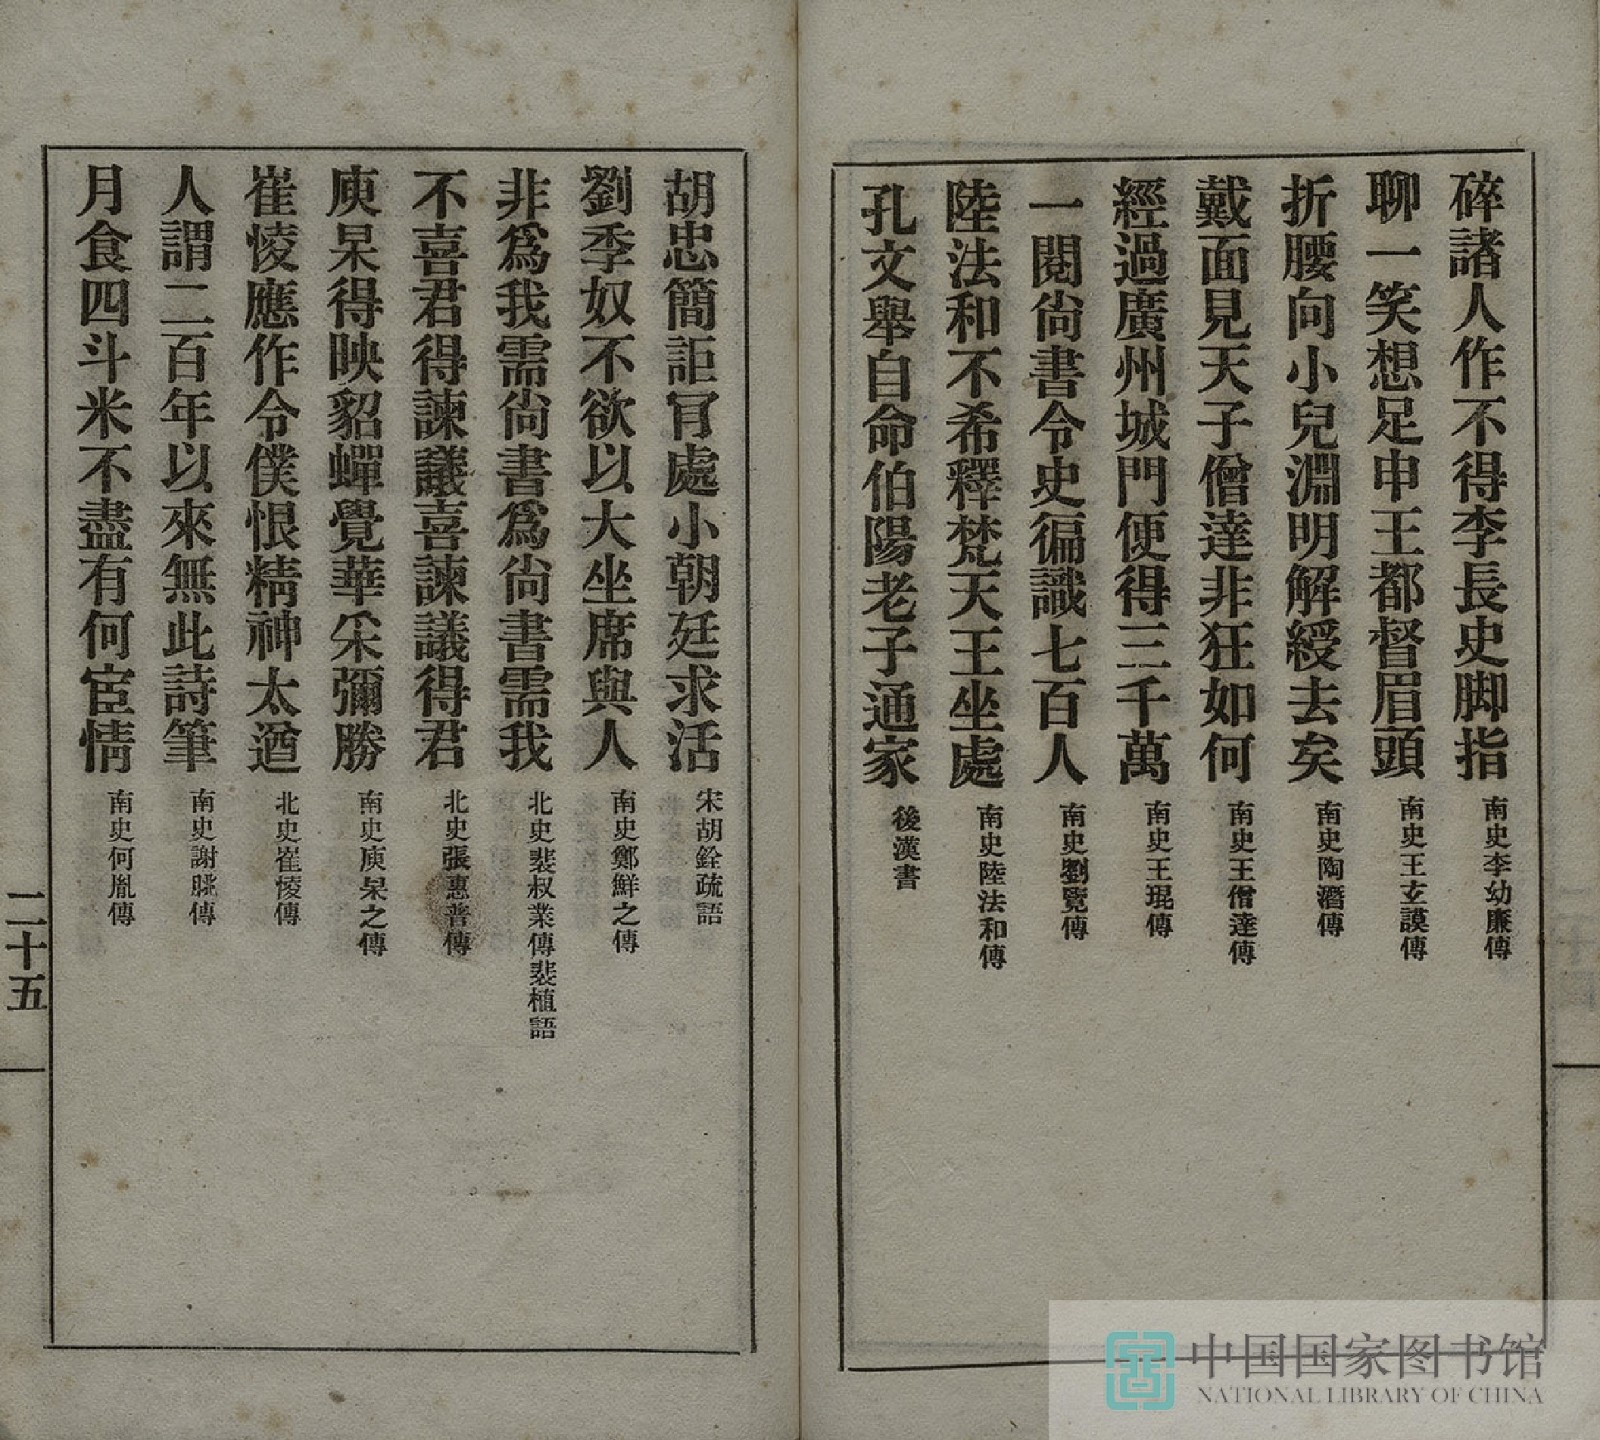 碎諸人作不得李長史脚指 南史李幼廉傳
聊一笑想足申王都督眉頭 南史王玄謨傳
折腰向小兒淵明解綬去矣 南史陶潛傳
戴面見天子僧達非狂如何 南史王僧達傳
經過廣州城門便得三千萬 南史王琨傳
一閱尙書令史徧識七百人 南史劉覽傳
陸法和不希釋梵天王坐處 南史陸法和傳
孔文舉自命伯陽老子通家 後漢書
胡忠簡詎肯處小朝廷求活 宋胡銓疏語
劉季奴不欲以大坐席與人 南史鄭鮮之傳
非爲我需尙書爲尙書需我 北史裴叔業傳裴植語
不喜君得諫議喜諫議得君 北史張惠普傳
庾杲得映貂蟬覺華采彌勝 南史庾杲之傳
崔㥄應作令僕恨精神太遒 北史崔㥄傳
人謂二百年以來無此詩筆 南史謝朓傳
月食四斗米不盡有何宦情 南史何胤傳
二十五
中国国家图书馆
NATIONAL LIBRARY OF CHINA